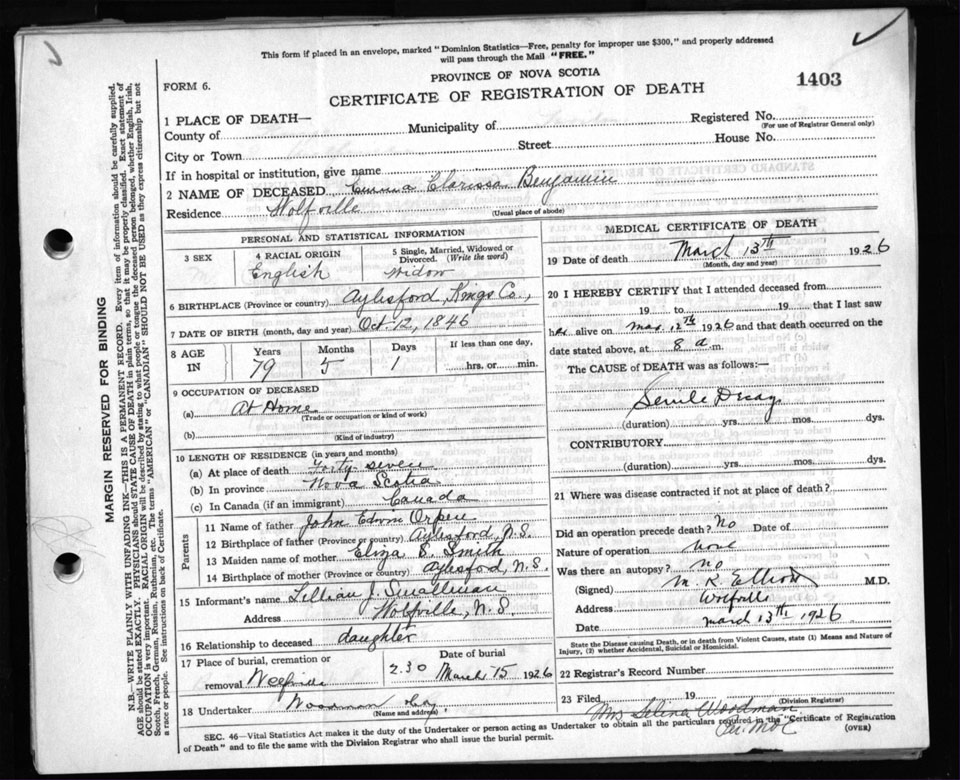 This form if placed in an envelope, marked "Dominion Statistics—Free, penalty for improper use $300," and properly addressed
will pass through the Mail "FREE."
PROVINCE OF NOVA SCOTIA
FORM 6.
1403
CERTIFICATE OF REGISTRATION OF DEATH
1 PLACE OF DEATH—
Registered No.
(For use of Registrar General only)
County of
Municipality of
Street
House No.
City or Town
If in hospital or institution, give name
2 NAME OF DECEASED Emma Clarissa Benjamin
Residence Wolfville
(Usual place of abode)
PERSONAL AND STATISTICAL INFORMATION
3 SEX
4 RACIAL ORIGIN
English
5 Single, Married, Widowed or
Divorced. (Write the word)
Widow
6 BIRTHPLACE (Province or country) Aylesford, Kings Co.,
7 DATE OF BIRTH (month, day and year) Oct. 12, 1846
8 AGE IN
Years 79
Months 5
Days 1
If less than one day,
hrs. or min.
9 OCCUPATION OF DECEASED
(a) At Home
(Trade or occupation or kind of work)
(b)
(Kind of industry)
10 LENGTH OF RESIDENCE (in years and months)
(a) At place of death Forty seven
(b) In province Nova Scotia
(c) In Canada (if an immigrant) Canada
Parents
11 Name of father John Edwin Orpen
12 Birthplace of father (Province or country) Aylesford, N.S.
13 Maiden name of mother Eliza E. Smith
14 Birthplace of mother (Province or country) Aylesford, N.S.
15 Informant's name Lillian J. Smallman
Address Wolfville, N.S
16 Relationship to deceased daughter
17 Place of burial, cremation or
removal Wolfville
2.30
Date of burial
March 15 1926
18 Undertaker Woodman
(Name and address)
MEDICAL CERTIFICATE OF DEATH
19 Date of death March 13th 1926
(Month, day and year)
20 I HEREBY CERTIFY that I attended deceased from
19 to 19 that I last saw
her alive on Mar 12th 1926 and that death occurred on the
date stated above, at 8 a m.
The CAUSE of DEATH was as follows:—
Senile Decay
(duration) yrs. mos. dys.
CONTRIBUTORY
(duration) yrs. mos. dys.
21 Where was disease contracted if not at place of death?
Did an operation precede death? No Date of
Nature of operation none
Was there an autopsy? no
(Signed) M. R. Elliott M.D.
Address Wolfville
Date march 13th 1926
State the Disease causing Death, or in death from Violent Causes, state (1) Means and Nature of
Injury, (2) whether Accidental, Suicidal or Homicidal.
22 Registrar's Record Number
23 Filed 19
(Division Registrar)
Mrs Selina Woodman
SEC. 46—Vital Statistics Act makes it the duty of the Undertaker or person acting as Undertaker to obtain all the particulars required in the "Certificate of Registration
of Death" and to file the same with the Division Registrar who shall issue the burial permit.
(OVER)
MARGIN RESERVED FOR BINDING
N.B.—WRITE PLAINLY WITH UNFADING INK—THIS IS A PERMANENT RECORD. Every item of information should be carefully supplied.
AGE should be stated EXACTLY. PHYSICIANS should STATE CAUSE OF DEATH in plain terms, so that it may be properly classified. Exact statement of
OCCUPATION is very important. RACIAL ORIGIN will be described by stating to what people or tongue the deceased person belonged, whether English, Irish,
Scotch, French, German, Russian, Ruthenian, etc. The terms "AMERICAN" or "CANADIAN" SHOULD NOT BE USED as they express citizenship but not
a race or people. See instructions on back of Certificate.